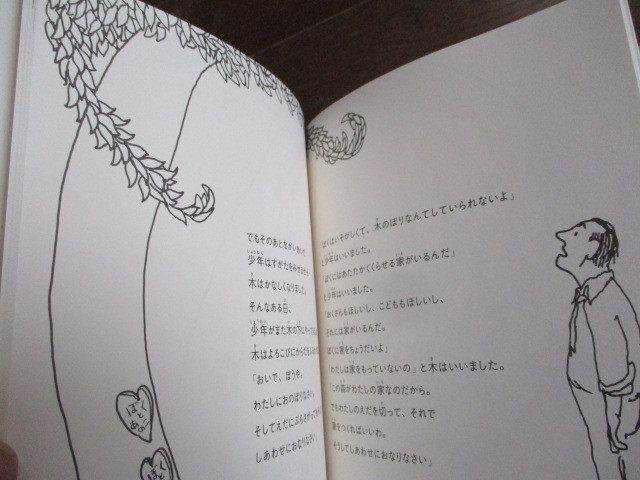 でもそのあとながいあいだ
少年はすがたをみせません
木はかなしくなりました。
そんなある日、
少年がまた木の下に
木はよろこびにからだを
「おいで、ぼうや、
わたしにおのぼりなさい。
そしてえだにぶらさがって
しあわせにおなりなさい
ぼく
と
あのこ
ぼく
と
「ぼくはいそがしくて、木のぼりなんてしていられないよ」
と少年はいいました。
「ぼくにはあたたかくくらせる家がいるんだ」
と少年はいいました。
「おくさんもほしいし、こどももほしいし、
それには家がいるんだ。
ぼくに家をちょうだいよ」
「わたしは家をもっていないの」と木はいいました。
「この森がわたしの家なのだから。
でもわたしのえだを切って、それで
家をつくればいいわ。
そうしてしあわせにおなりなさい」